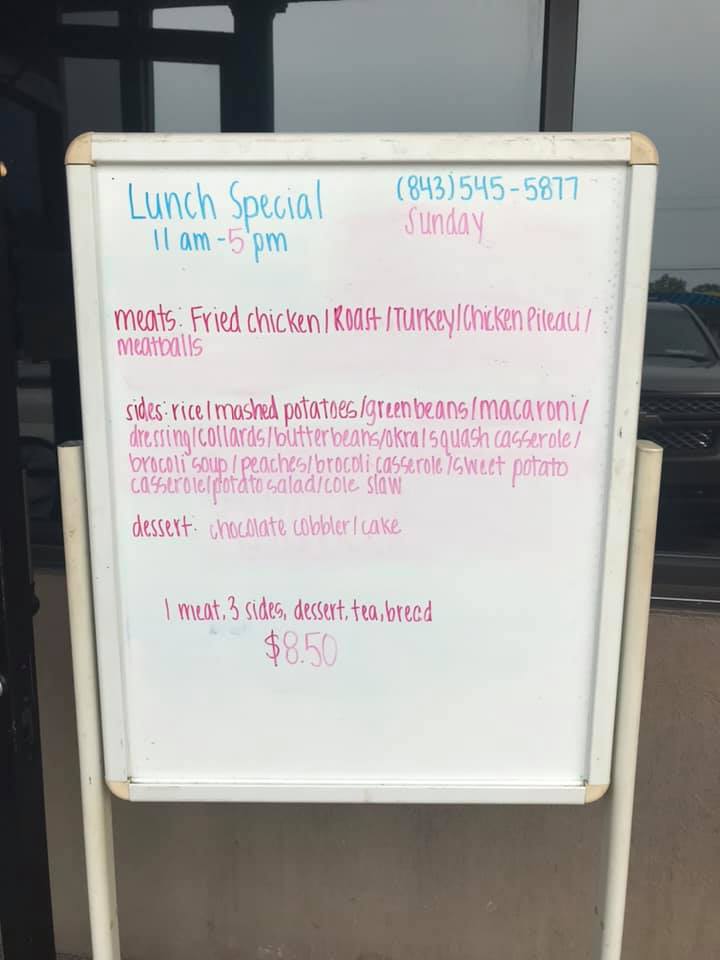 Lunch Special
11 am - 5 pm
(843) 545-5877
Sunday
meats: Fried chicken / Roast / Turkey / Chicken Pileau /
meatballs
sides: rice / mashed potatoes / green beans / macaroni /
dressing / collards / butter beans / okra / squash casserole /
brocoli soup / peaches / brocoli casserole / sweet potato
casserole / potato salad / cole slaw
dessert: chocolate cobbler / cake
1 meat, 3 sides, dessert, tea, bread
$8.50